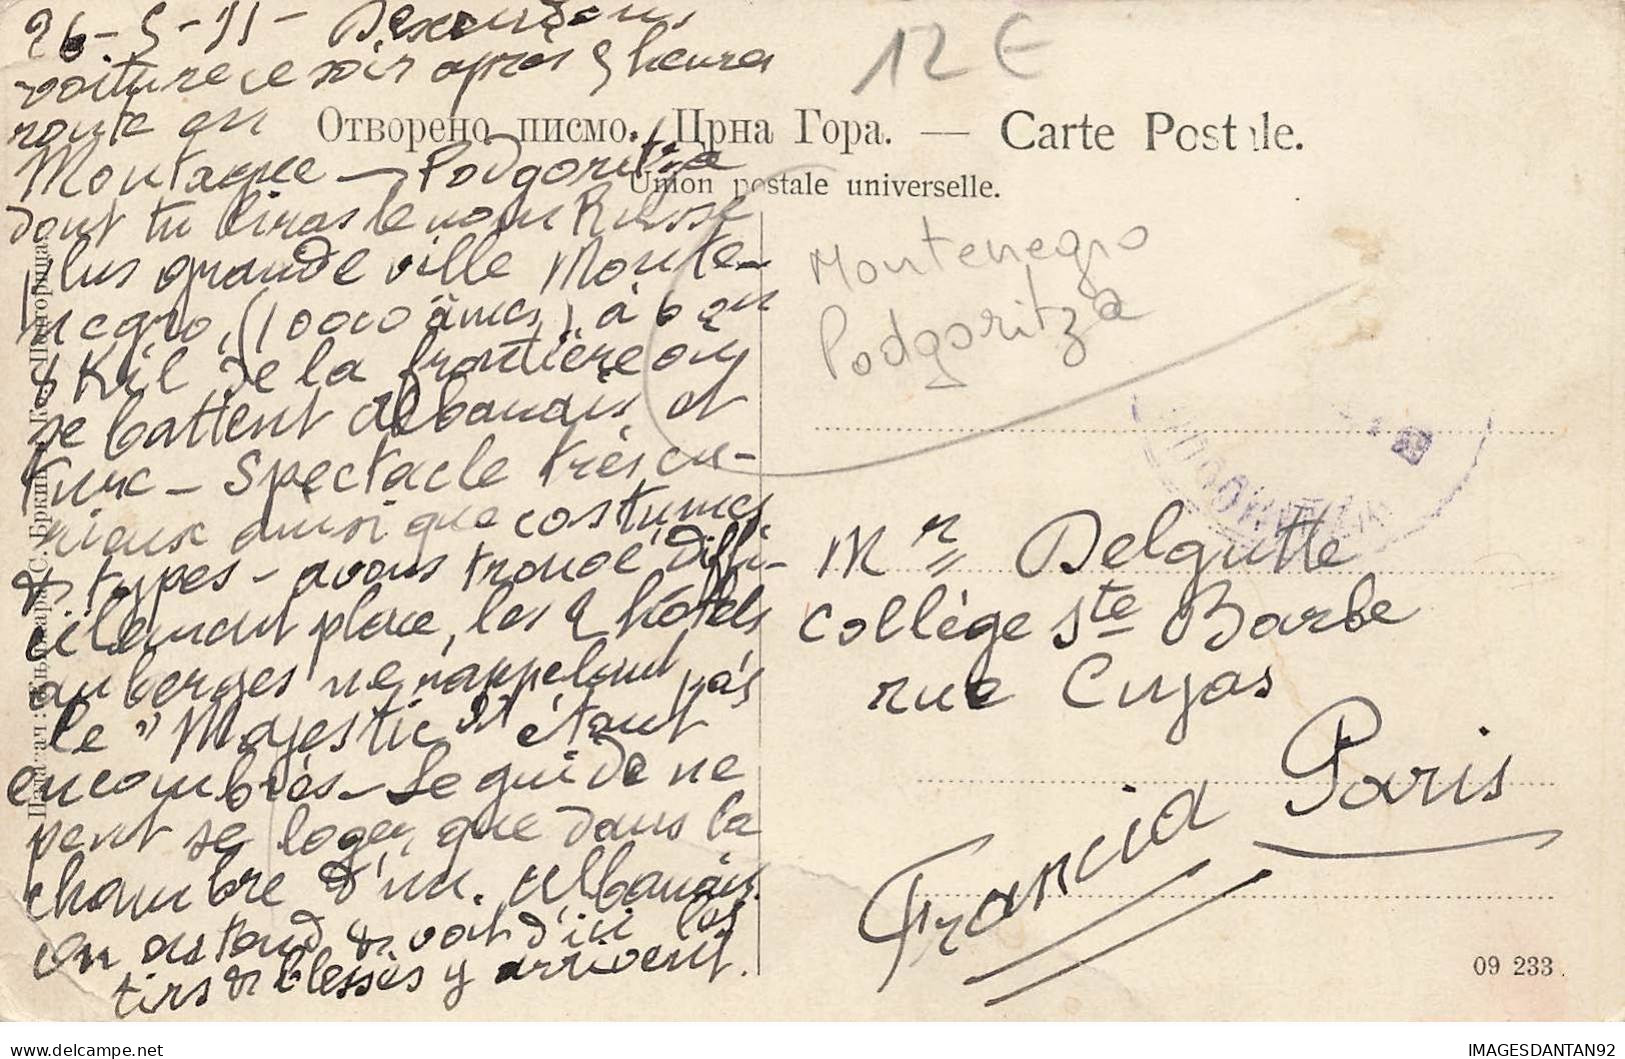 26-5-11 - Descendons
voiture ce soir après 9 heures
route en
Montagne - Podgoritza
dont tu liras le nom Russe
plus grande ville Monte-
negro, (10000 âmes) à 6 ou
8 Kil de la frontière où
se battent Albanais et
Turc - Spectacle très cu-
rieux ainsi que costumes
& types - avons trouvé diffi-
cilement place, les 2 hôtels
auberges ne rappelant pas
le "Majestic" et étant
encombrés - Le guide ne
peut se loger que dans la
chambre d'un Albanais.
On entend & voit d'ici les
tirs & blessés y arrivent.
12 €
Отворено писмо. Црна Гора. — Carte Postale.
Union postale universelle.
Montenegro
Podgoritza
Mr Delgutte
Collège Ste Barbe
rue Cujas
Paris
Francia
09 233
IMAGESDANTAN92
delcampe.net